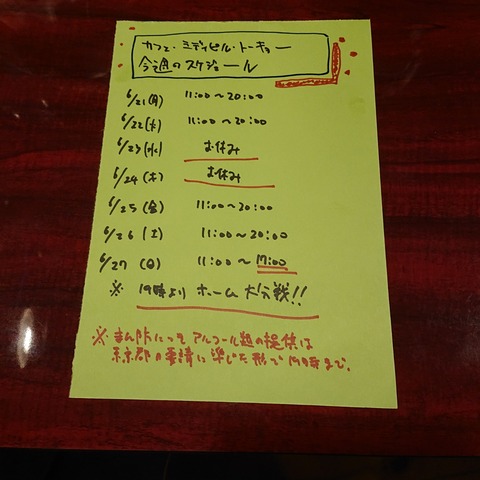 カフェ・ミディピル・トーキョー
今週のスケジュール
6/21(月) 11:00~20:00
6/22(火) 11:00~20:00
6/23(水) お休み
6/24(木) お休み
6/25(金) 11:00~20:00
6/26(土) 11:00~20:00
6/27(日) 11:00~17:00
※ 19時より ホーム大分戦!!
※まん防につき アルコール類の提供は
東京都の要請に準じた形で19時まで。